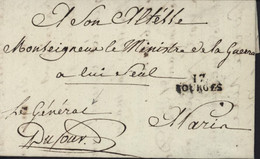 A Son Altesse
Monseigneur le Ministre de la Guerre
a lui Seul
17
BOURGES
Le Général
Dufour
Paris